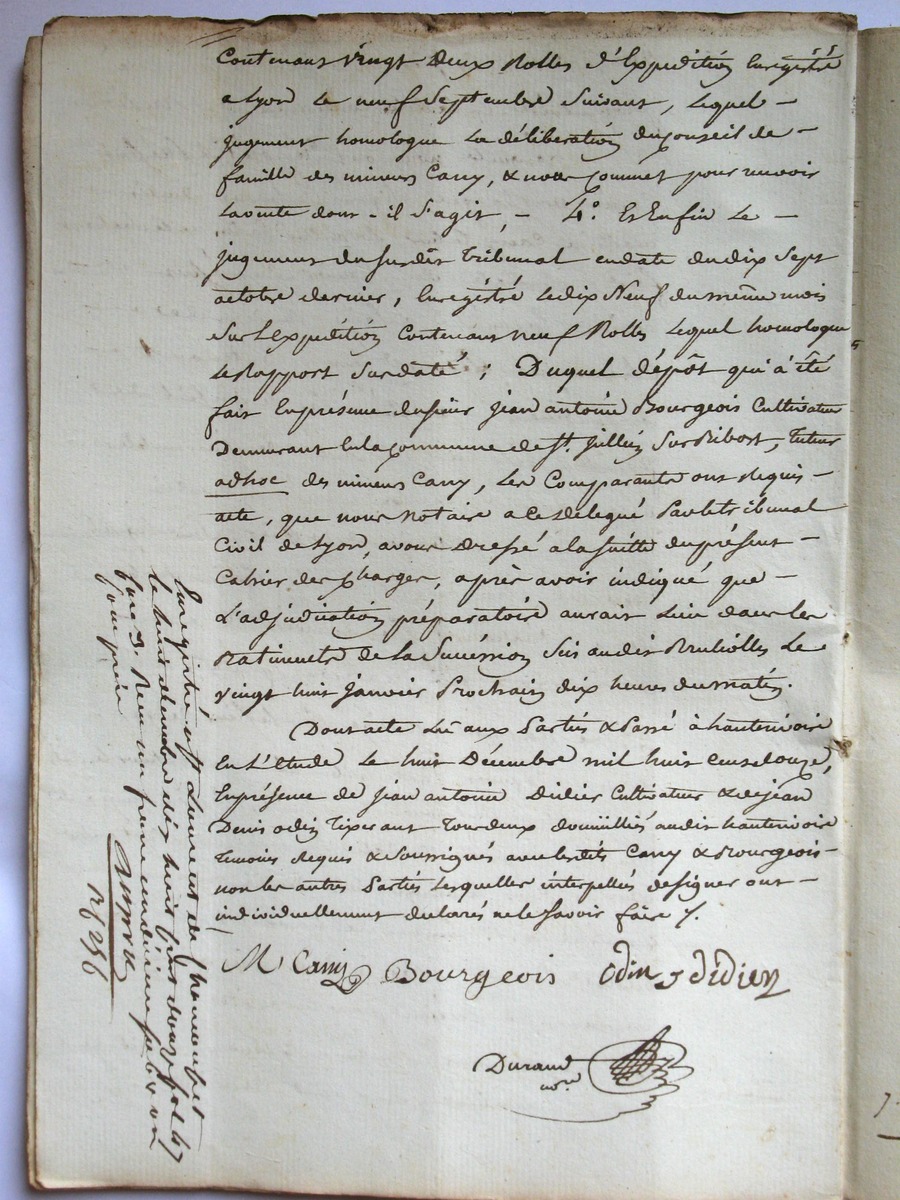 Contenant vingt deux Rolles d'Expédition Enregistré
a Lyon Le neuf Septembre Suivant, Lequel –
jugement homologue La délibération du Conseil de –
famille des mineurs Cany, & nous Commet pour recevoir
La vente dont - il S'agit, – 4.º Et Enfin Le –
jugement du Susdit Tribunal en date du dix Sept
octobre dernier, Enregistré Le dix Neuf du même mois
Sur L'Expédition Contenant neuf Rolles Lequel homologue
Le Rapport Susdaté; Duquel dépôt qui à été
fait En présence du Sieur jean antoine Bourgeois Cultivateur
Demeurant En la Commune de St. jullien Sur Bibost, Tuteur
adhoc des mineurs Cany, Les Comparants ont Requis –
acte, que nous Notaire a ce Délégué Par le tribunal
Civil de Lyon, avons Dressé a la Suitte du présent –
Cahier des Charges, après avoir indiqué que –
L'adjudication préparatoire aurait Lieu dans les
Batiments de la Succession Sis audit Brullolles Le
vingt huit janvier Prochain dix heures du matin.
Dont acte Lu aux Parties & Passé à hauterivoire
En L'étude Le huit Décembre mil huit Cent onze,
En présence de jean antoine Didier Cultivateur & de jean
Denis odin Tixerant Tous deux domiciliés audit hauterivoire
Témoins Requis & Soussignés avec lesdits Cany & Bourgeois –
non les autres Parties Lesquelles interpellées de signer ont –
individuellement déclarés ne le Savoir faire /.
M Cany Bourgeois odin j didier
Durand
nore
Enregistré à St Laurent de Chamousset
le huit décembre dix huit cent onze fol. 47
Reçu un franc
Compris